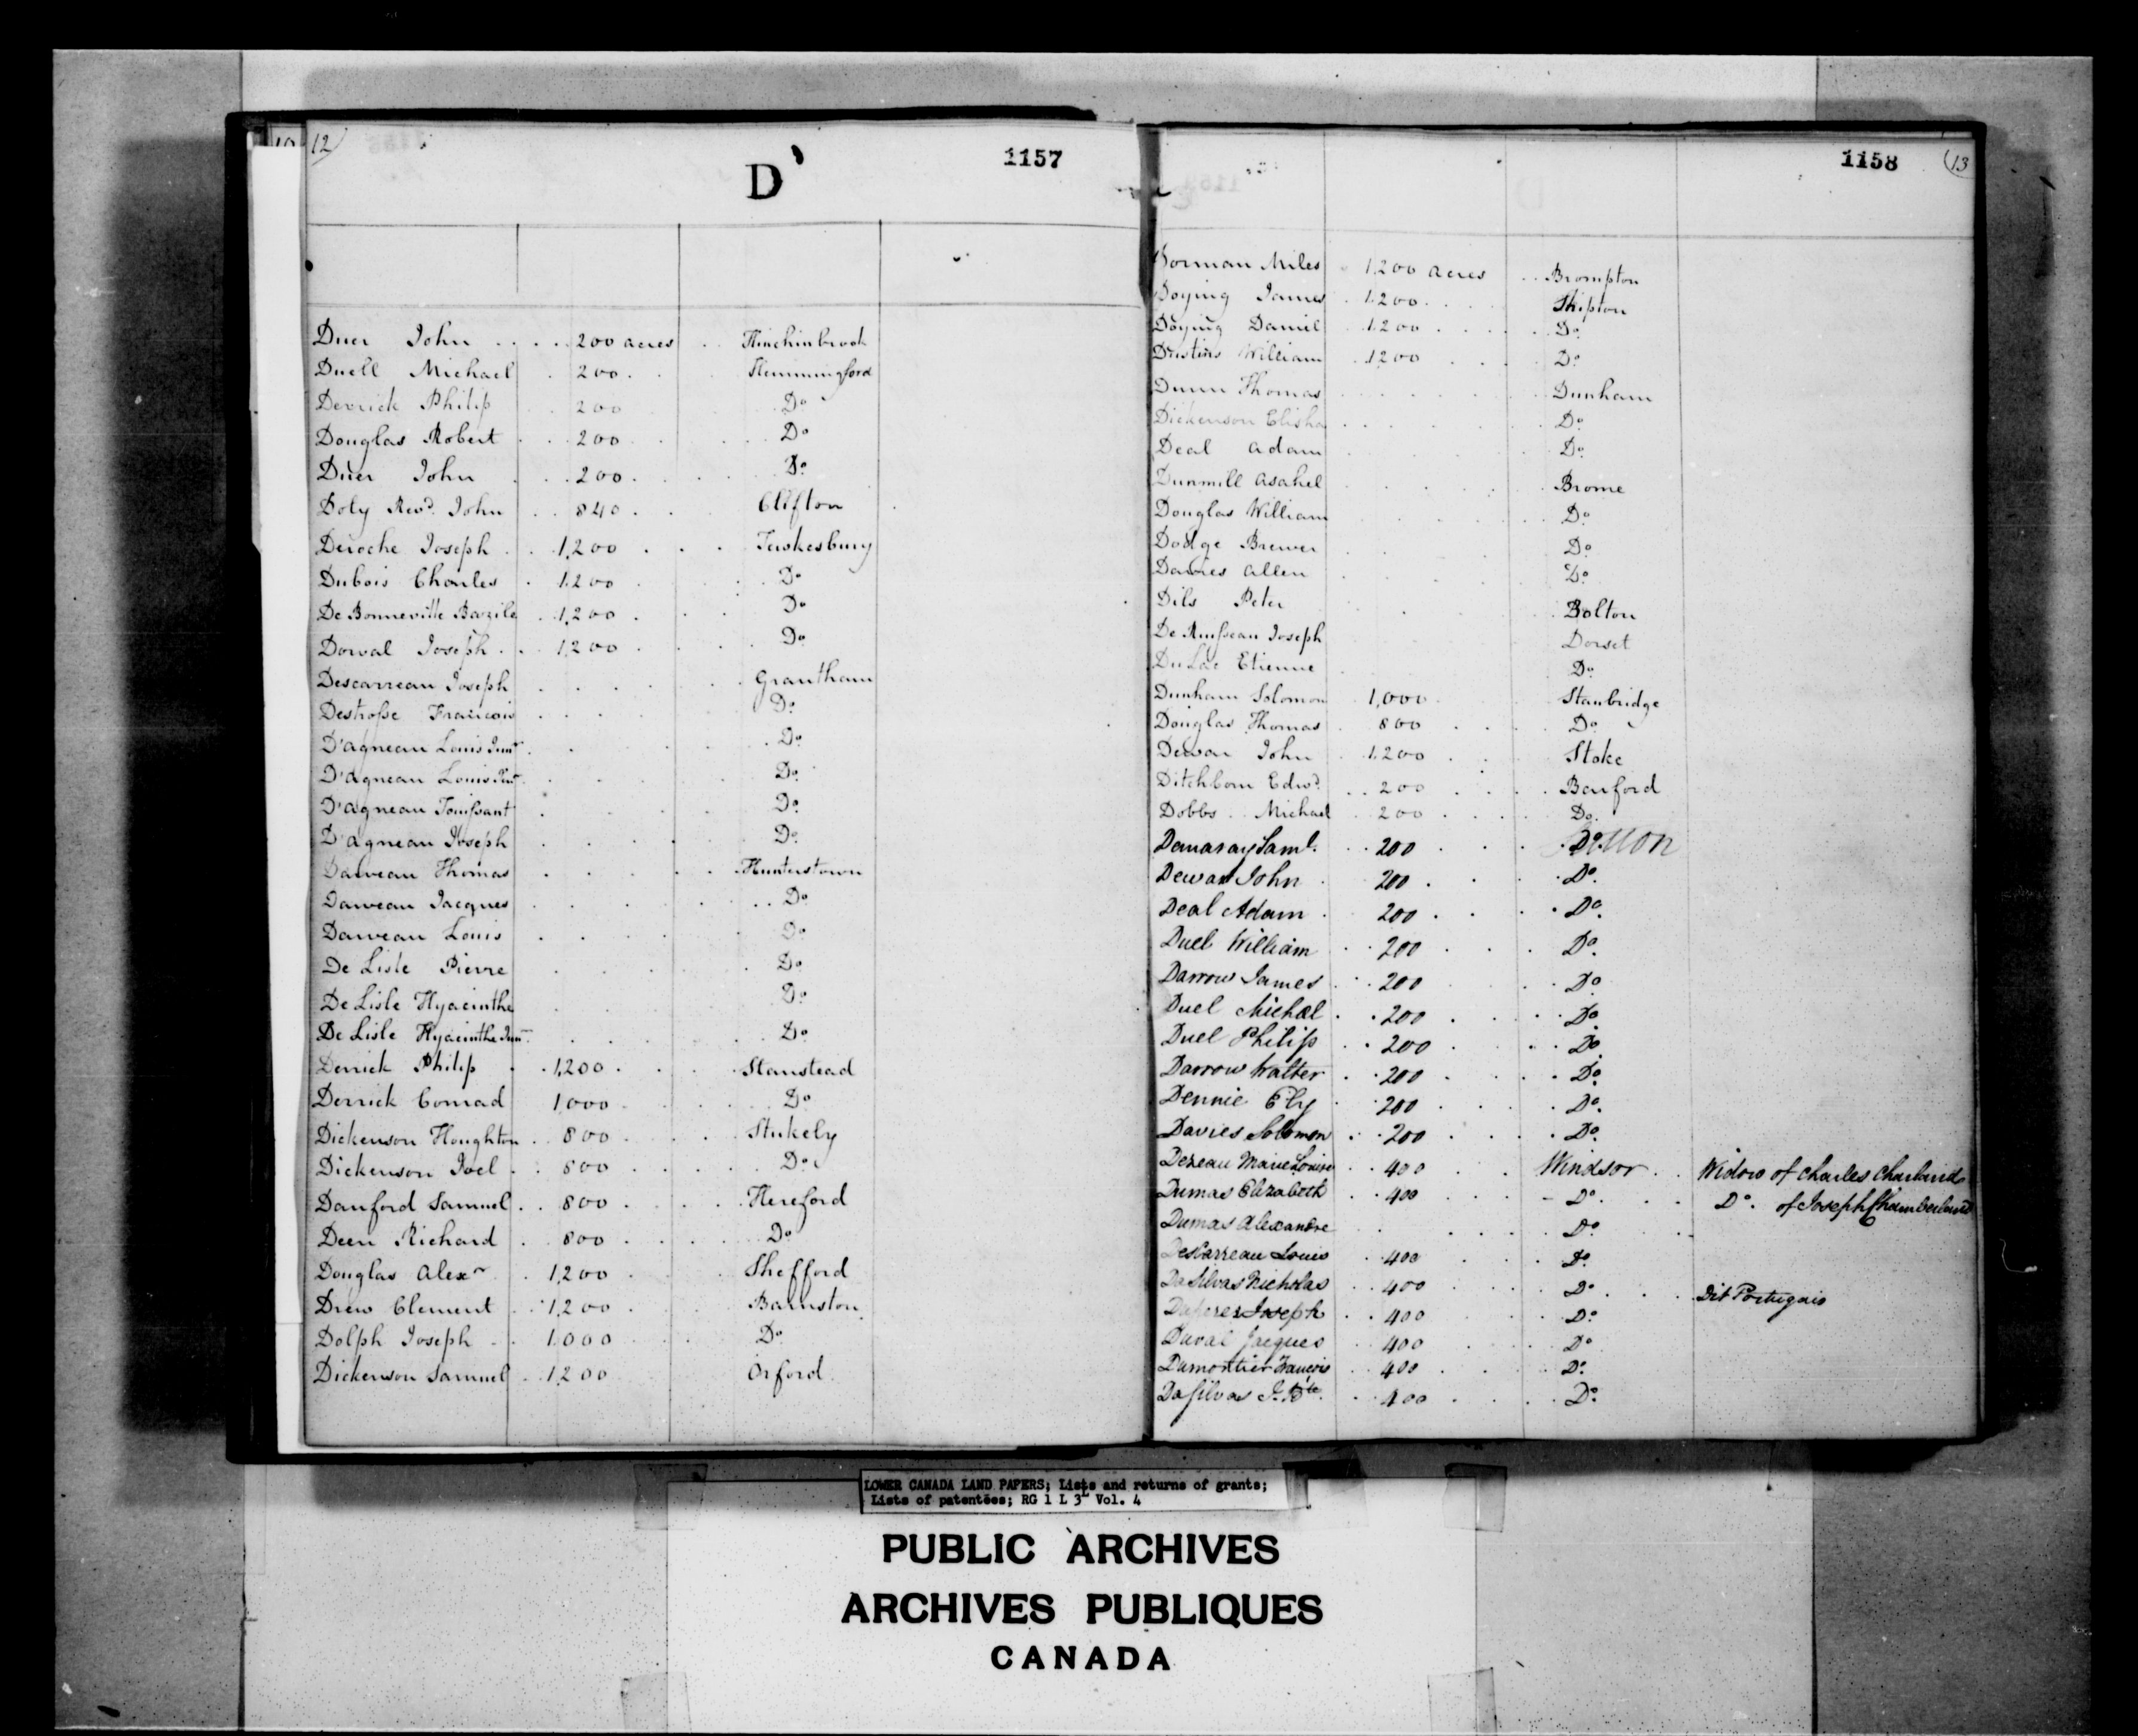 12
D
1157
Duer John 200 acres Hinchinbrook
Duell Michael 200 Hemmingford
Derrick Philip 200 Do
Douglas Robert 200 Do
Duer John 200 Do
Doty Revd. John 840 Clifton
Deroche Joseph 1,200 Tewkesbury
Dubois Charles 1200 Do
De Bonneville Bazile 1,200 Do
Dorval Joseph 1,200 Do
Descarreau Joseph Grantham
Destrosse Francois Do
D'agneau Louis Junr Do
D'agneau Louis Do
D'agneau Toussant Do
D'agneau Joseph Do
Daweau Thomas Hunterstown
Daweau Jacques Do
Daweau Louis Do
De Lisle Pierre Do
De Lisle Hyacinthe Do
De Lisle Hyacinthe Junr Do
Derrick Philip 1,200 Stanstead
Derrick Conrad 1000 Do
Dickenson Houghton 800 Stukely
Dickenson Joel 800 Do
Danford Samuel 800 Hereford
Deen Richard 800 Do
Douglas Alexr 1,200 Shefford
Drew Clement 1,200 Barnston
Dolph Joseph 1000 Do
Dickenson Samuel 1,200 Orford
1158 13
Dorman Miles 1,200 acres Brompton
Doying James 1200 Shipton
Doying Daniel 1200 Do
Dustins William 1200 Do
Dunn Thomas Dunham
Dickenson Elisha Do
Deal Adam Do
Dunmill Asahel Brome
Douglas William Do
Dodge Brewer Do
Davies Allen Do
Dils Peter Bolton
De Ruisseau Joseph Dorset
DuLac Etienne Do
Dunham Solomon 1,000 Stanbridge
Douglas Thomas 800 Do
Dewar John 1,200 Stoke
Ditchborn Edwd 200 Barford
Dobbs Michael 200 Do
Demaray Saml. 200 Do
Dewar John 200 Do
Deal Adam 200 Do
Duel William 200 Do
Darrow James 200 Do
Duel Michael 200 Do
Duel Philip 200 Do
Darrow Walter 200 Do
Dennie Ely 200 Do
Davies Solomon 200 Do
Dezeau Marie Louise 400 Windsor Widow of Charles Charland
Dumas Elizabeth 400 Do Do. of Joseph Chamberland
Dumas Alexandre Do
DesCarreau Louis 400 Do
DaSilvas Nicholas 400 Do Dit Portugais
Joseph 400 Do
Duval Jacques 400 Do
Dumontier Francois 400 Do
DaSilvas J. Bte. 400 Do
LOWER CANADA LAND PAPERS; Lists and returns of grants;
Lists of patentees; RG 1 L 3L Vol. 4
PUBLIC ARCHIVES
ARCHIVES PUBLIQUES
CANADA